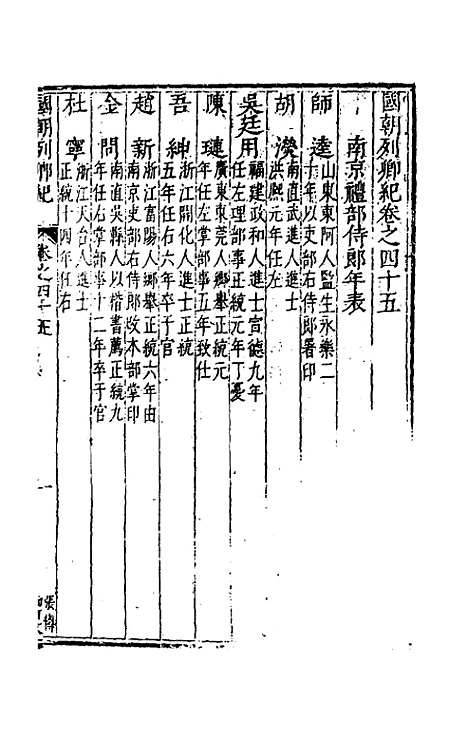 國朝列卿紀卷之四十五
南京禮部侍郎年表
師逵
山東東阿人監生永樂二
十年以吏部右侍郎署印
胡濙
南直武進人進士
洪熙元年任左
吳廷用
福建政和人進士宣德九年
任左理部事正統元年丁憂
陳璉
廣東東莞人鄉舉正統元
年任左掌部事五年致仕
吾紳
浙江開化人進士正統
五年任右六年卒于官
趙新
浙江富陽人鄉舉正統六年由
南京吏部右侍郎改本部掌印
金問
南直吳縣人以楷書薦正統九
年任右掌部事十二年卒于官
杜寧
浙江天台人進士
正統十四年任右
國朝列卿紀
卷之四十五
一